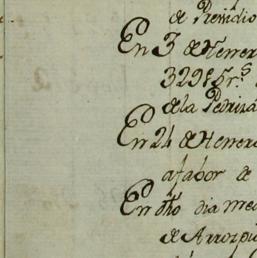 de Presidio
En 3 de Henero
329 85 r.s
de la Pedriza
En 24 de Henero
afabor de
En dho dia me
de Arrozpi